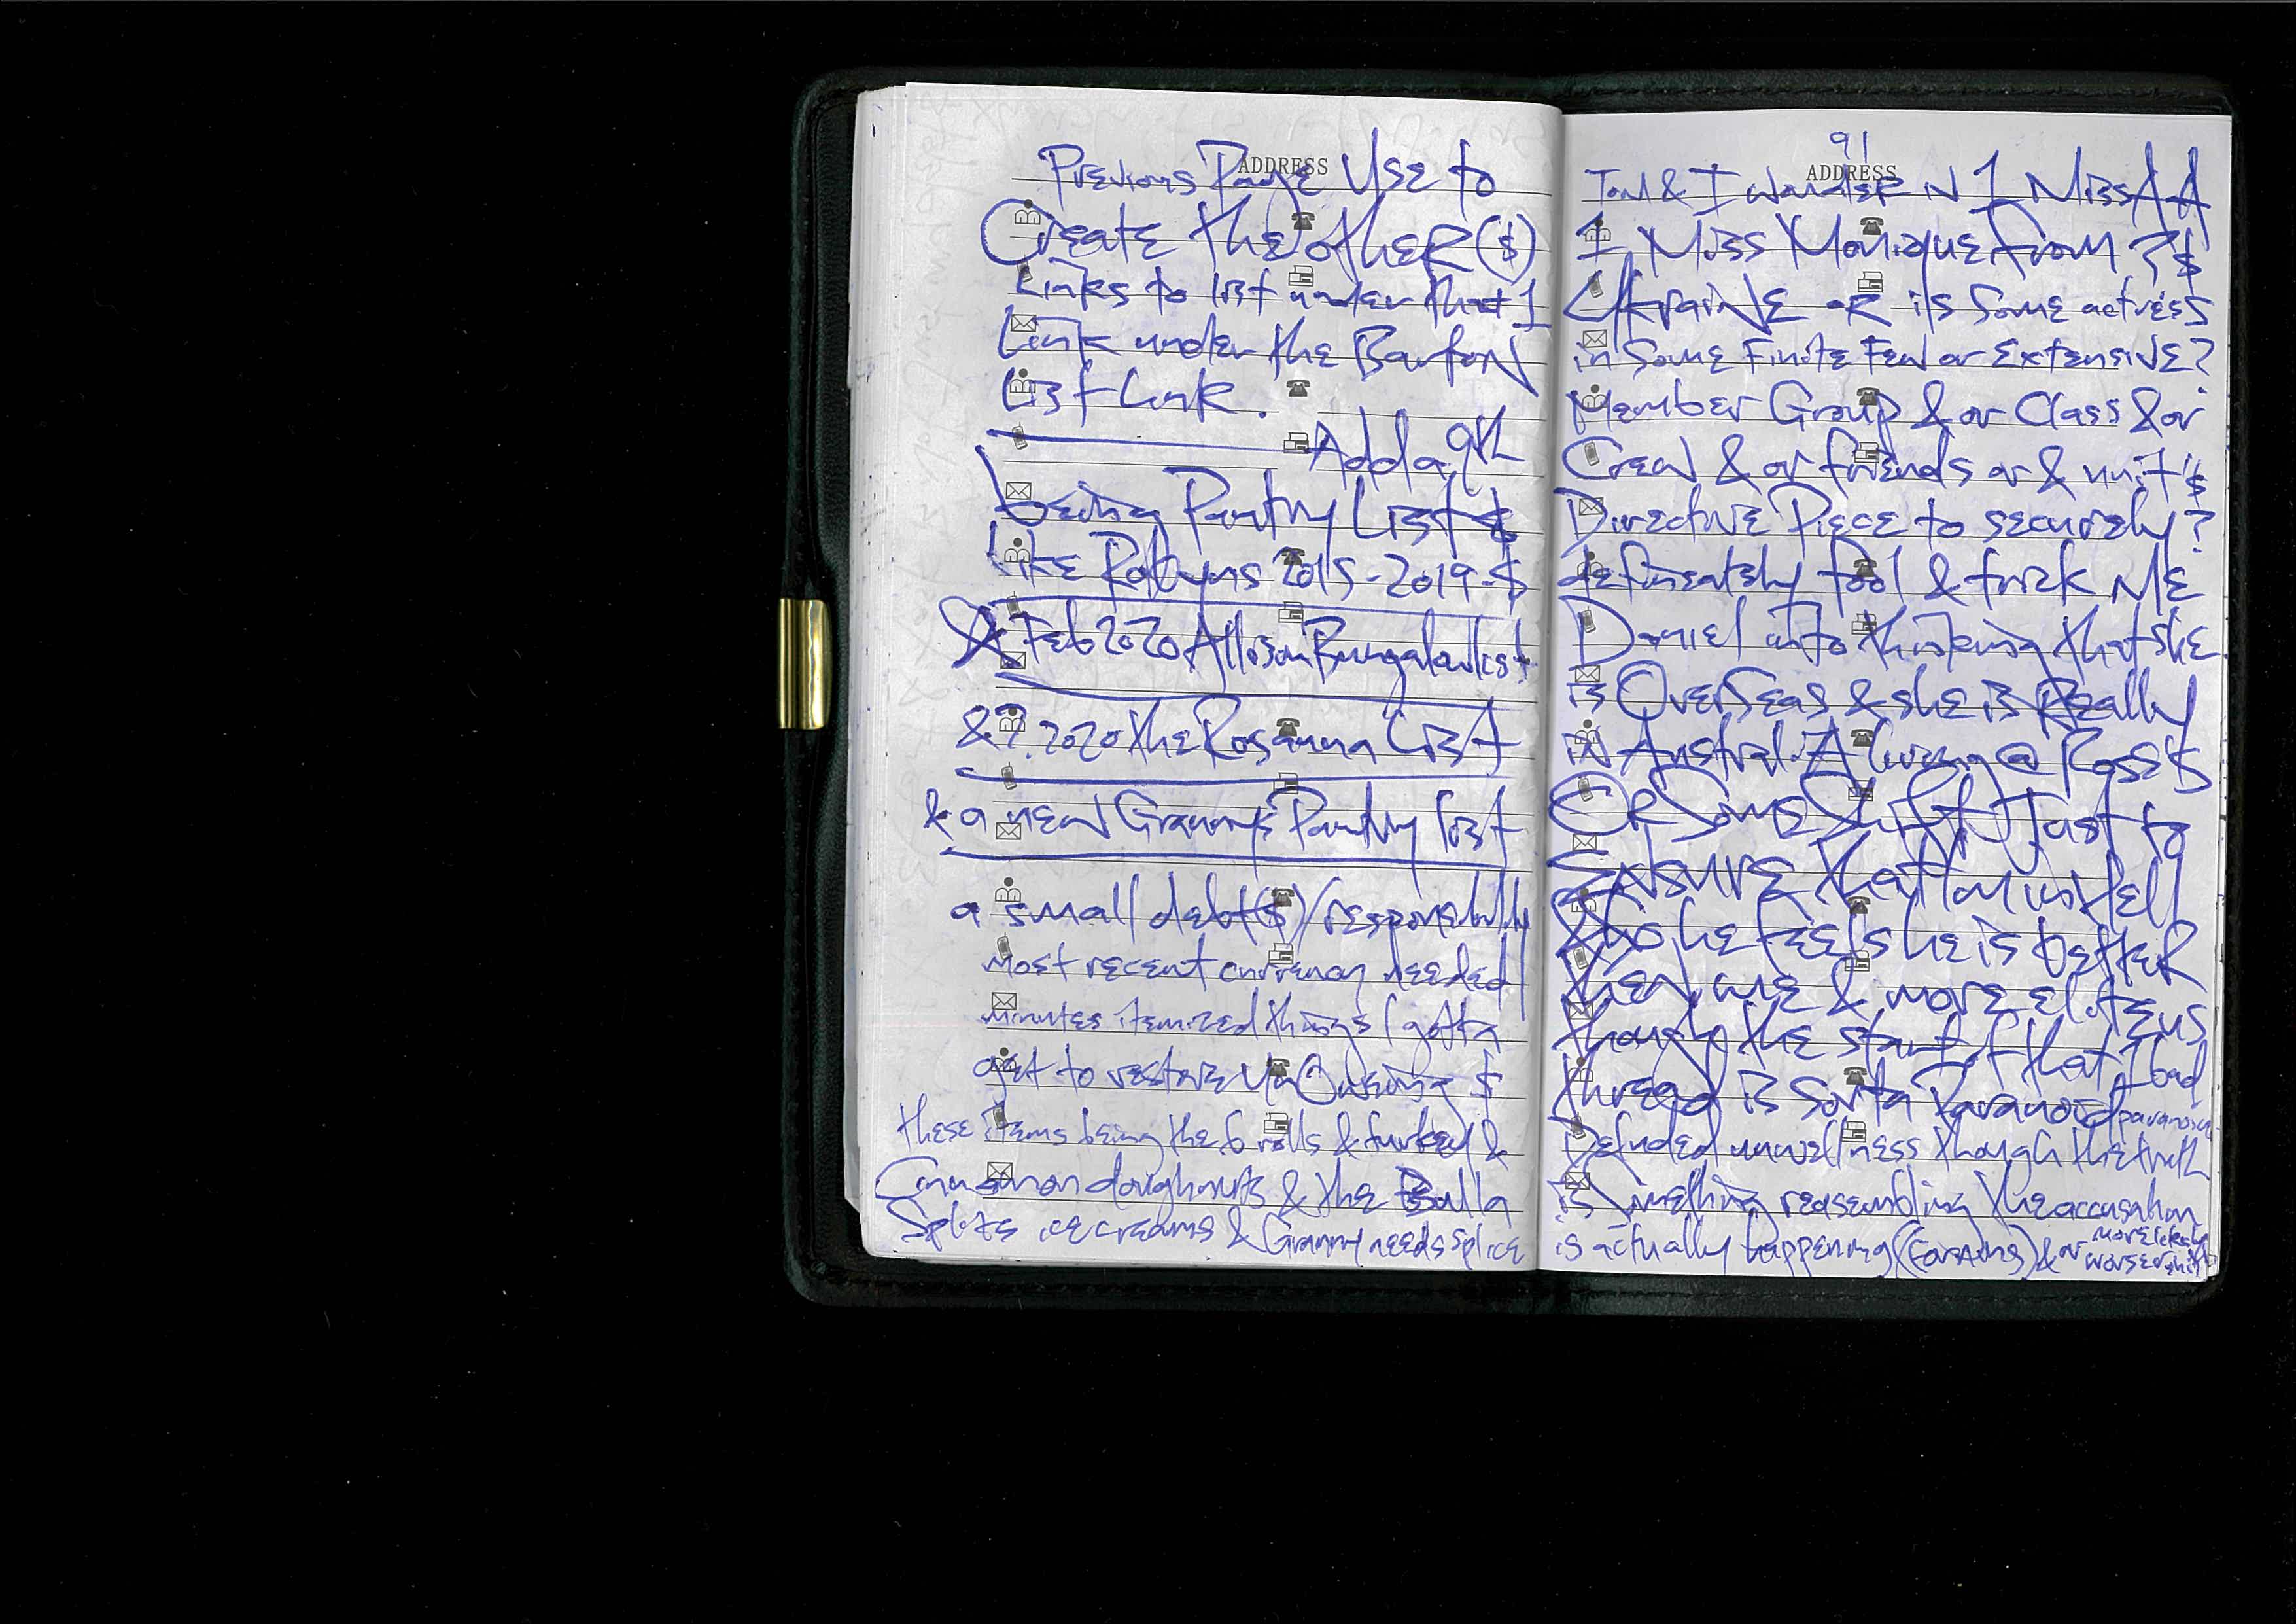 ADDRESS
Previous Page Use to
Create the other ($)
Links to list under that 1
Link under the
List Link.
Add a
being Pantry List $
Like Robyns 2015-2019 $
& Feb 2020 Allison Bungalow List
& ? 2020 the Rosanna List
& a new Granny's Pantry list
a small debt($)/responsibility
most recent currency needed
minutes itemized things I gotta
get to restore
these items being the 6 rolls & turkey &
Cinnamon doughnuts & the Bulla
Splits ice creams & Granny needs splice
91
ADDRESS
& I wonder N 1 Miss AA
1 Miss Monique from ? $
Ukraine or is some actress
in some Finite Few or Extensive?
Member Group & or Class & or
Crew & or friends or & unit $
Directive Piece to securely?
defineately fool & trick ME
Daniel into thinking that she
is OverSeas & she is Really
in AustraliA living @ Ross's
OR Some Shift Just to
Ensure that
he feel she is better
then me & more
though the start of that 1 bad
thread is Sorta Paranoid paranoia
unwellness though the truth
is Something reasembling the accusation
is actually happening & or more likely
worser